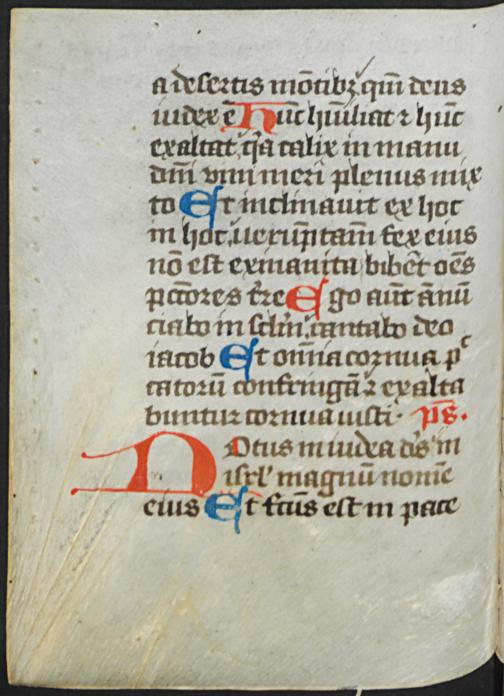 a desertis mōtibꝫ qm̄ deus
iudex ē Hūc hūiliat ⁊ hūc
exaltat, qͥa calix in manu
dn̄i vini meri plenus mix
to Et inclinauit ex hoc
in hoc, uerūptam̄ fex eius
nō est exinanita bibēt oēs
pccōres t̄re Ego aūt ānū
ciabo in sclm̄, cantabo deo
iacob Et om̄ia cornua pͨ
catorū confringā⁊ exalta
buntur cornua iusti · ps̄.
Notus in iudea ds̄ in
isrl̓ magnū nomē
eius Et fc̄us est in pace